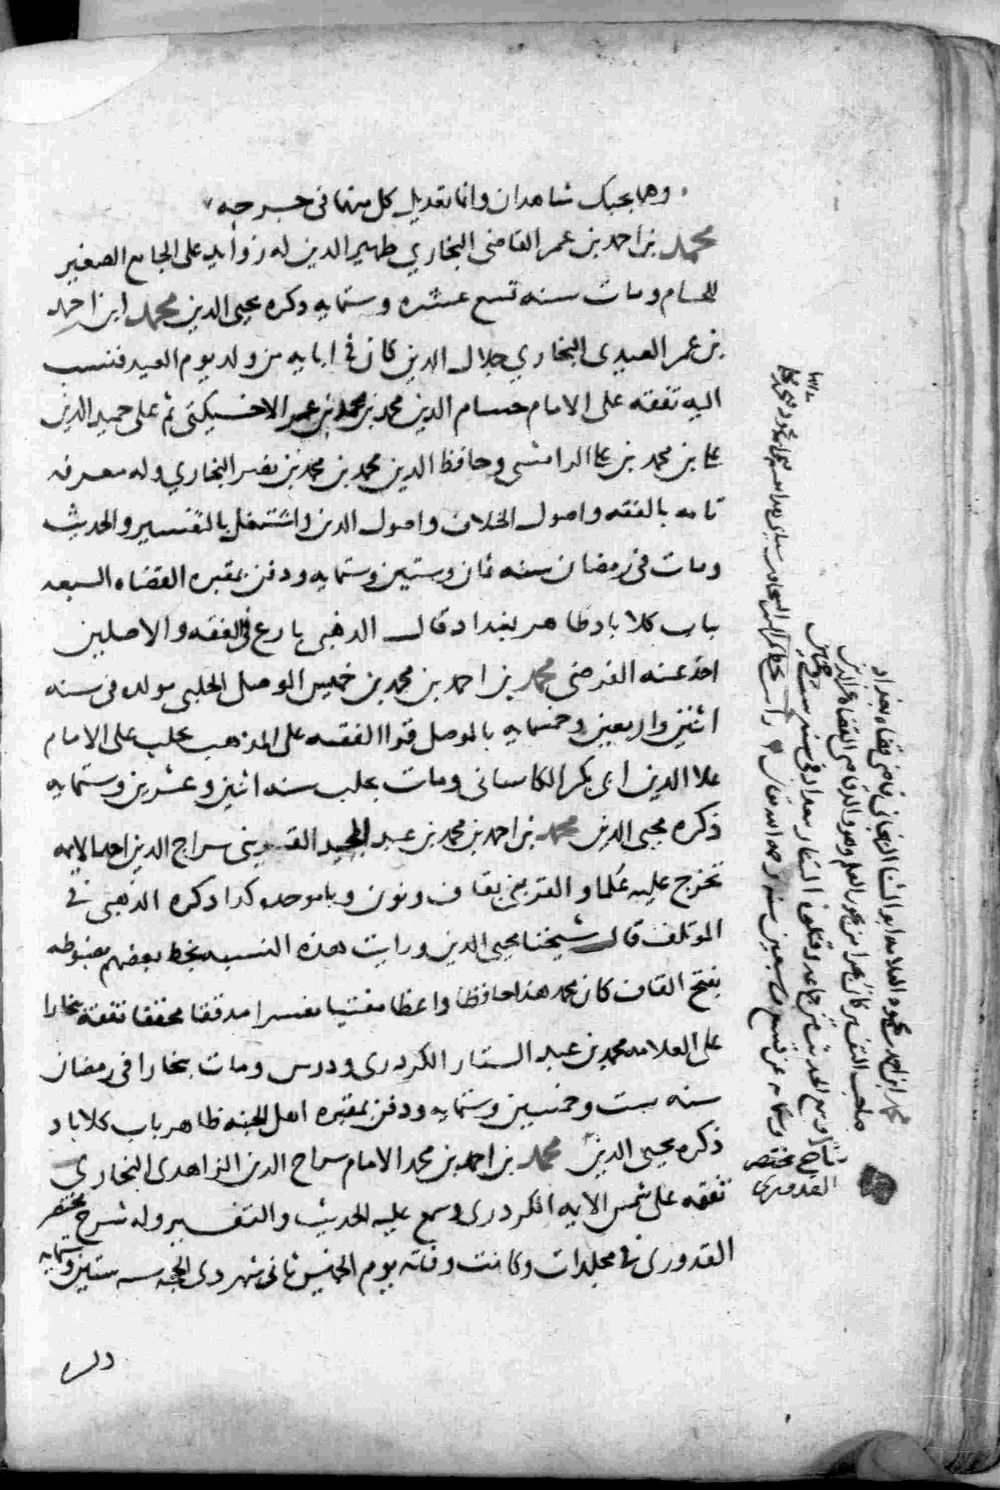 وهما بحبك شاهدان وانما تعديل كل منهما في جرحه
محمد بن احمد بن عمر القاضي البخاري ظهير الدين له زوايد على الجامع الصغير
للحسام ومات سنه تسع عشره وستمايه ذكره محيى الدين محمد ابن احمد
بن عمر العيدى البخاري جلال الدين كان في ابايه من ولد يوم العيد فنسب
اليه تفقه على الامام حسام الدين محمد بن محمد بن عمر الاخسيكثى ثم على حميد الدين
على بن محمد بن على الرامشى وحافظ الدين محمد بن محمد بن نصر البخاري وله معرفه
تامه بالفقه واصول الخلاف واصول الدين واشتغل بالتفسير والحديث
ومات في رمضان سنه ثمان وستين وستمايه ودفن بمقبره القضاه السبعه
باب كلاباد ظاهر بغداد قال الذهبى بارع في الفقه والاصلين
اخذ عنه الفرضى محمد بن احمد بن محمد بن خميس الموصلى الحلبى مولده في سنه
اثنين واربعين وخمسمايه بالموصل قرا الفقه على المذهب بحلب على الامام
علا الدين ابى بكر الكاسانى ومات بحلب سنه اثنين وعشرين وستمايه
ذكره محيى الدين محمد بن احمد بن محمد بن عبد المجيد القرنبى سراج الدين احد الايمه
تخرج عليه علما والقرنبى بقاف ونون وبا موحده كذا ذكره الذهبى في
الموتلف قال شيخنا محيى الدين ورايت هذه النسبه بخط بعضهم مضبوطه
بفتح القاف كان محمد هذا حافظا واعظا مفتيا مفسرا مدققا محققا تفقه ببخارا
على العلامه محمد بن عبد الستار الكردرى ودرس ومات ببخارا في رمضان
سنه ست وخمسين وستمايه ودفن بمقبره اهل الجنه ظاهر باب كلاباد
ذكره محيى الدين محمد بن احمد بن محمد الامام سراج الدين الزاهدى البخارى
تفقه على شمس الايمه الكردرى وسمع عليه الحديث والتفسير وله شرح مختصر
القدورى في مجلدات وكانت وفاته يوم الخميس ثانى شهر ذى الحجه سنه ستين وستمايه
ذكره
محمد ابن احمد بن محمود العلامه ابو الثنا الزنجانى قاضى قضاه بغداد
صاحب التفسير كان بحرا من بحور العلم وهو والد قاضى القضاه عز الدين
شارح مختصر
القدورى